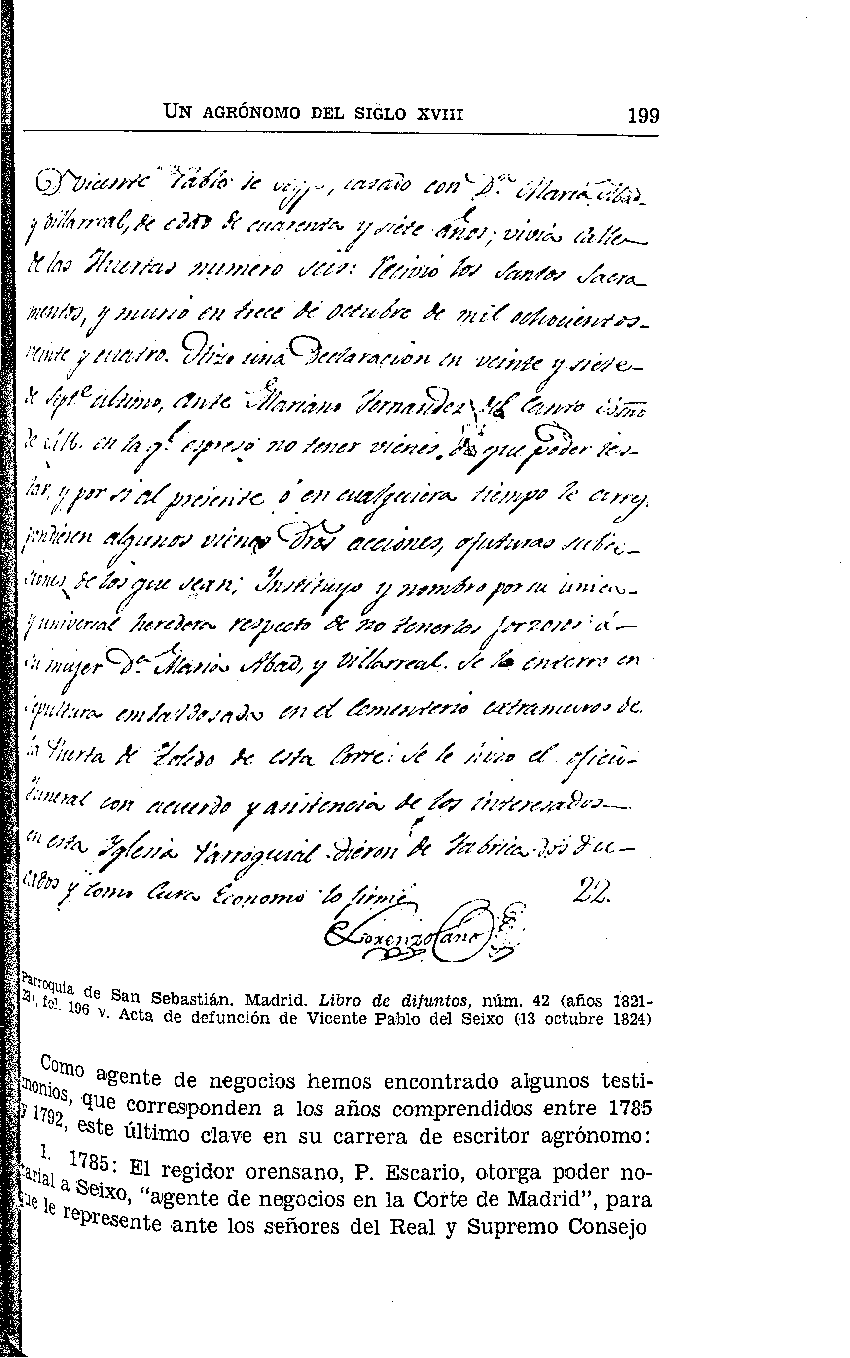 UN AGRÓNOMO DEL SIGLO XVIII 199
Dn Vicente Pablo de, casado con Dª. Maria Abad
y Villarreal, de edad de cuarenta y siete años; vivia calle
de las Huertas numero seis: Recivió los Santos Sacra
mentos, y murió en trece de octubre de mil ochocientos
veinte y cuatro. Hizo una Declaracion en veinte y siete
de Septe. ultimo, ante Mariano Fernandez del Canto
en la ql. espresó no tener vienes, de que poder tes-
tar, y por si al presente ó en cualquiera tiempo le
algunos vienes Dros acciones, ofuturas
de los que sean; Instituyo y nombro por su unica
y universal heredera respecto de no tenerlos forzosos á
su mujer Dª. Maria Abad, y Villarreal. Se le enterro en
sepultura embaldosada en el Cementerio extramuros de
la Puerta de Toledo de esta Corte: Se le hizo el oficio
funeral con acuerdo y asistencia de los interesados
en esta Iglesia Parroquial dieron de Fabrica dos du-
cados y como Cura Economo lo firmé 22.
Lorenzo Cano
Parroquia de San Sebastián. Madrid. Libro de difuntos, núm. 42 (años 1821-
23), fol. 196 v. Acta de defunción de Vicente Pablo del Seixo (13 octubre 1824)
Como agente de negocios hemos encontrado algunos testi-
monios, que corresponden a los años comprendidos entre 1785
y 1792, este último clave en su carrera de escritor agrónomo:
1. 1785: El regidor orensano, P. Escario, otorga poder no-
tarial a Seixo, "agente de negocios en la Corte de Madrid", para
que le represente ante los señores del Real y Supremo Consejo